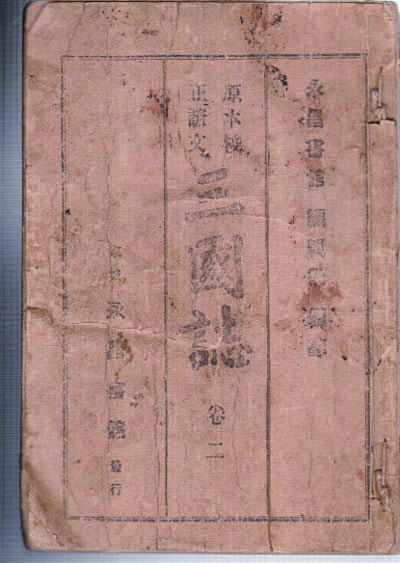 永昌書館 編輯部
原本校
正諺文
三國誌
卷二
永昌書館 發行